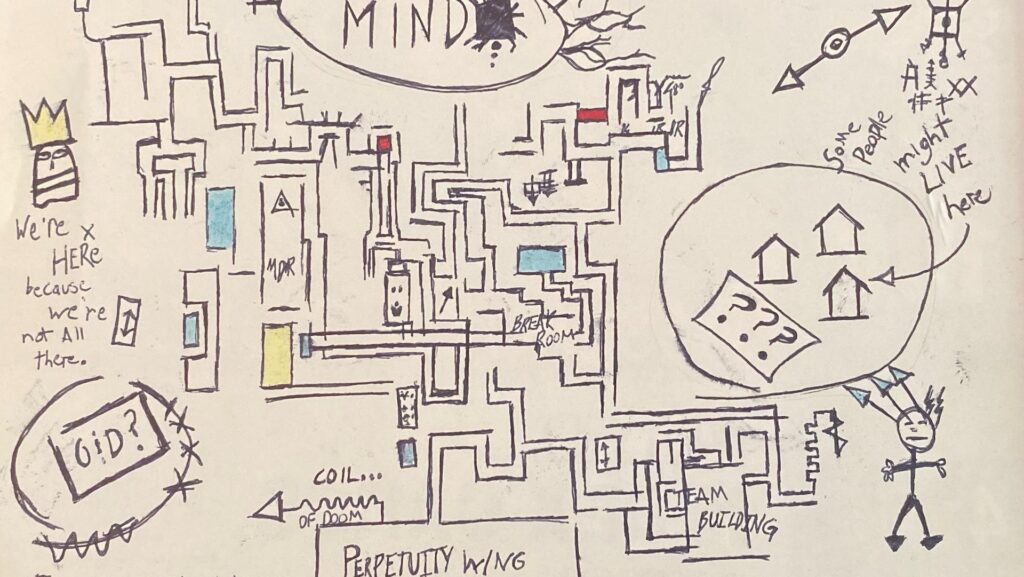 MIND
Some
People
might
LIVE
here
We're
HERE
because
we're
not All
there.
MDR
BREAK
ROOM
???
OiD?
COIL...
OF DOOM
TEAM
BUILDING
PERPETUITY WING